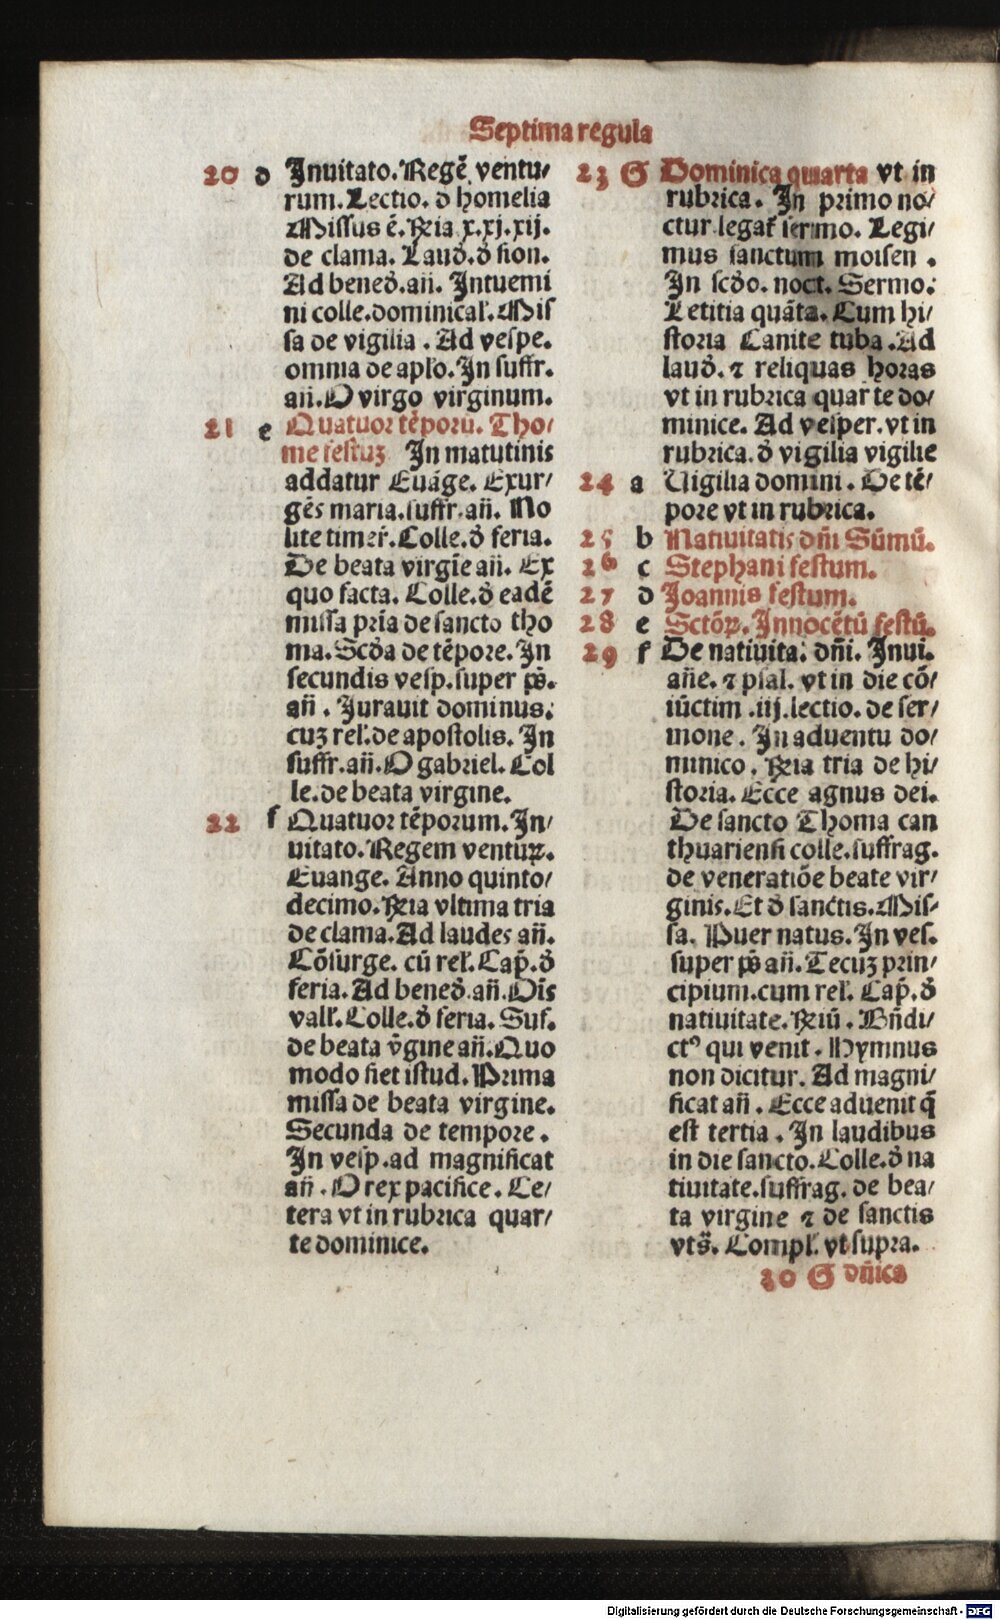 Septima regula
20 d Inuitato. Regē ventu⸗
rum. Lectio. d̄ homelia
Missus ē. R̄ia x.xj.xij.
de clama. Laud̄. d̄ sion.
Ad bened̄. añ. Intuemi
ni colle. dominical̄. Mis
sa de vigilia . Ad vespe.
omnia de apl̄o. In suffr.
añ. O virgo virginum.
21 e Quatuor tēporū. Tho⸗
me festuꝫ In matutinis
addatur Euāge. Exur⸗
gēs maria. suffr. añ. No
lite timer̄. Colle. d̄ feria.
De beata virgīe añ. Ex
quo facta. Colle. d̄ eadē
missa pria de sancto tho
ma. Scd̄a de tēpore. In
secundis vesp. super p̄s.
añ . Jurauit dominus.
cuꝫ rel̄. de apostolis. In
suffr. añ. O gabriel. Col
le. de beata virgine.
22 f Quatuor tēporum. In⸗
uitato. Regem ventuꝝ.
Euange. Anno quinto⸗
decimo. R̄ia vltima tria
de clama. Ad laudes añ.
Cōsurge. cū rel̄. Cap̄. d̄
feria. Ad bened̄. añ. Oīs
vall̄. Colle. d̄ feria. Suf.
de beata v̄gine añ. Quo
modo fiet istud. Prima
missa de beata virgine.
Secunda de tempore .
In vesp. ad magnificat
añ . O rex pacifice. Ce⸗
tera vt in rubrica quar⸗
te dominice.
23 G Dominica quarta vt in
rubrica. In primo no⸗
ctur legat̄ sermo. Legi⸗
mus sanctum moisen .
In scd̄o. noct. Sermo.
Letitia quāta. Cum hi⸗
storia Canite tuba . Ad
laud̄. ⁊ reliquas horas
vt in rubrica quarte do⸗
minice. Ad vesper. vt in
rubrica. d̄ vigilia vigilie
24 a Uigilia domini . De tē⸗
pore vt in rubrica.
25 b Natiuitatis dñi Sūmū.
26 c Stephani festum.
27 d Joannis festum.
28 e Sctōꝝ. Innocētū festū.
29 f De natiuita. dñi. Inui.
añe. ⁊ psal. vt in die cō⸗
iūctim .iij. lectio. de ser⸗
mone . In aduentu do⸗
minico . R̄ia tria de hi⸗
storia. Ecce agnus dei.
De sancto Thoma can
thuariensi colle. suffrag.
de veneratiōe beate vir⸗
ginis. Et d̄ sanctis. Mis⸗
sa. Puer natus. In ves.
super p̄s añ. Tecuꝫ prin⸗
cipium. cum rel̄. Cap̄. d̄
natiuitate. R̄iū . Bñdi⸗
ctꝰ qui venit . Hymnus
non dicitur. Ad magni⸗
ficat añ . Ecce aduenit q̄
est tertia . In laudibus
in die sancto. Colle. d̄ na
tiuitate. suffrag. de bea⸗
ta virgine ⁊ de sanctis
vts̄. Compl̄. vt supra.
30 G dñica
Digitalisierung gefördert durch die Deutsche Forschungsgemeinschaft - DFG